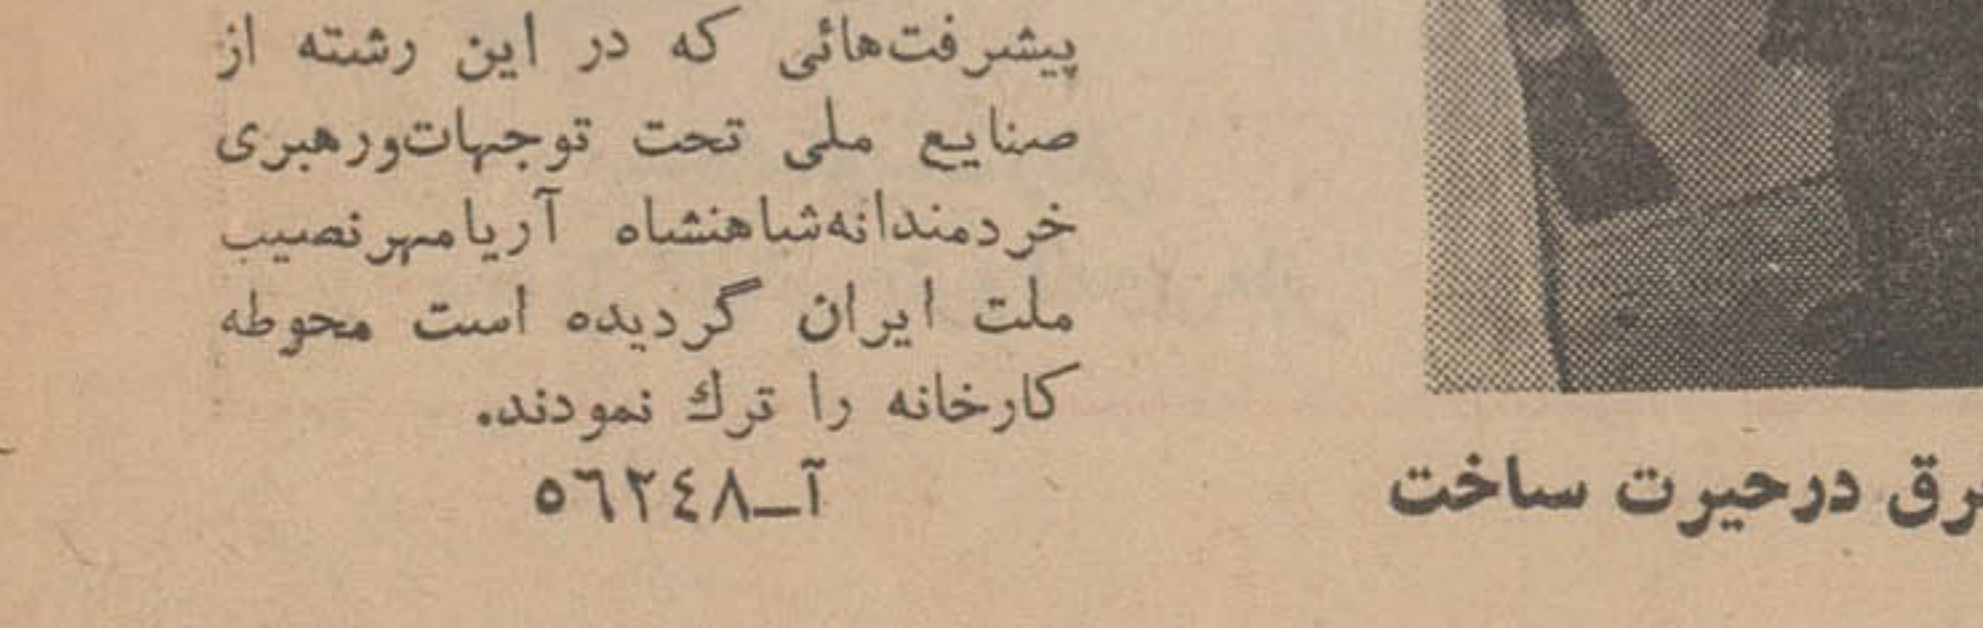 پیشرفت‌هائی که در این رشته از
صنایع ملی تحت توجهات‌ورهبری
خردمندانه‌شاهنشاه آریامهرنصیب
ملت ایران گردیده است محوطه
کارخانه را ترك نمودند.
آ_٥٦٢٤٨
درحیرت ساخت